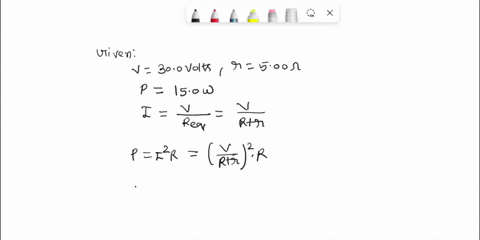 Given:
V = 30.0 volts , r = 5.00 Ω
P = 15.0 W
I = V/Req = V/R+r
P = I²R = (V/R+r)² · R